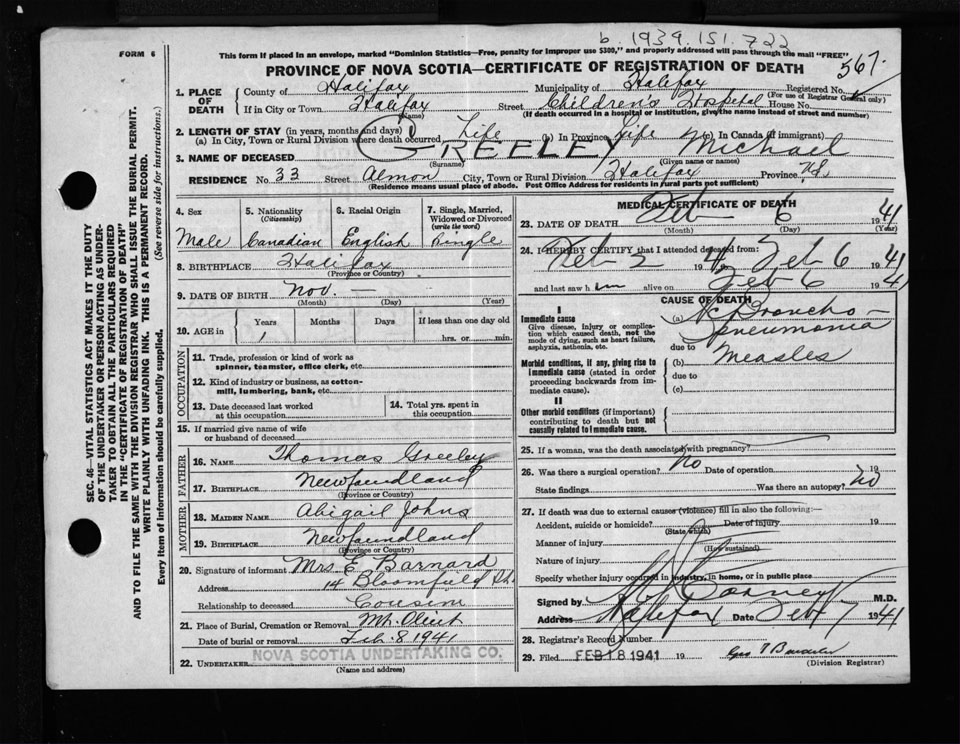 b. 1939. 151. 722
FORM 6
This form if placed in an envelope, marked "Dominion Statistics—Free, penalty for improper use $300," and properly addressed will pass through the mail "FREE"
PROVINCE OF NOVA SCOTIA—CERTIFICATE OF REGISTRATION OF DEATH 567.
1. PLACE OF DEATH County of Halifax Municipality of Halifax Registered No.
(For use of Registrar General only)
If in City or Town Halifax Street Children's Hospital House No.
(Name) (If death occurred in a hospital or institution, give the name instead of street and number)
2. LENGTH OF STAY (in years, months and days)
(a) In City, Town or Rural Division where death occurred Life (b) In Province Life (c) In Canada (if immigrant)
3. NAME OF DECEASED GREELEY Michael
(Surname) (Given name or names)
RESIDENCE No. 33 Street Almon City, Town or Rural Division Halifax Province N.S.
(Residence means usual place of abode. Post Office Address for residents in rural parts not sufficient)
4. Sex 5. Nationality (Citizenship) 6. Racial Origin 7. Single, Married, Widowed or Divorced (write the word)
Male Canadian English Single
8. BIRTHPLACE Halifax
(Province or Country)
9. DATE OF BIRTH Nov. —
(Month) (Day) (Year)
10. AGE in Years Months Days If less than one day old
1 hrs. or min.
OCCUPATION
11. Trade, profession or kind of work as spinner, teamster, office clerk, etc.
12. Kind of industry or business, as cotton-mill, lumbering, bank, etc.
13. Date deceased last worked at this occupation
14. Total yrs. spent in this occupation
15. If married give name of wife or husband of deceased
FATHER
16. NAME Thomas Greeley
17. BIRTHPLACE Newfoundland
(Province or Country)
MOTHER
18. MAIDEN NAME Abigail Johns
19. BIRTHPLACE Newfoundland
(Province or Country)
20. Signature of informant Mrs. E Barnard
Address 14 Bloomfield St.
Relationship to deceased Cousin
21. Place of Burial, Cremation or Removal Mt. Olivet
Date of burial or removal Feb. 8 1941
22. UNDERTAKER NOVA SCOTIA UNDERTAKING CO.
MEDICAL CERTIFICATE OF DEATH
23. DATE OF DEATH Feb 6 1941
(Month) (Day) (Year)
24. I HEREBY CERTIFY that I attended deceased from:
Feb 2 1941 Feb 6 1941
and last saw him alive on Feb 6 1941
CAUSE OF DEATH
I
Immediate cause
Give disease, injury or complication which caused death, not the mode of dying, such as heart failure, asphyxia, asthenia, etc.
(a) Broncho-pneumonia
due to
Morbid conditions, if any, giving rise to immediate cause (stated in order proceeding backwards from immediate cause).
(b) Measles
due to
(c)
II
Other morbid conditions (if important) contributing to death but not causally related to immediate cause.
25. If a woman, was the death associated with pregnancy?
26. Was there a surgical operation? No Date of operation 19
State findings Was there an autopsy? No
27. If death was due to external causes (violence) fill in also the following:—
Accident, suicide or homicide? Date of injury 19
(State which)
Manner of injury
(How sustained)
Nature of injury
Specify whether injury occurred in industry, in home, or in public place
Signed by M.D.
Address Halifax Date Feb 7 1941
28. Registrar's Record Number
29. Filed FEB 18 1941 19
(Division Registrar)
SEC. 46—VITAL STATISTICS ACT MAKES IT THE DUTY
OF THE UNDERTAKER OR PERSON ACTING AS UNDER-
TAKER TO OBTAIN ALL THE PARTICULARS REQUIRED
IN THE "CERTIFICATE OF REGISTRATION OF DEATH"
AND TO FILE THE SAME WITH THE DIVISION REGISTRAR WHO SHALL ISSUE THE BURIAL PERMIT.
WRITE PLAINLY WITH UNFADING INK. THIS IS A PERMANENT RECORD.
Every item of information should be carefully supplied. (See reverse side for instructions.)